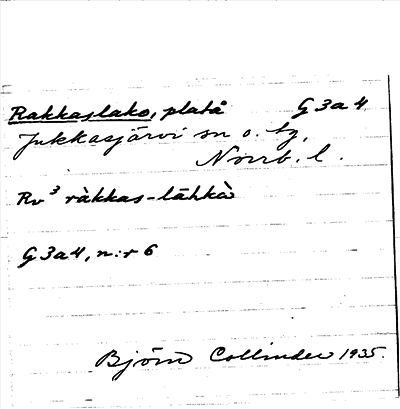 Rakkaslako, platå G 3a 4.
Jukkasjärvi sn o. tg,
Norrb. l.
Rv³ ràkkas-lāhkà
G 3a4, n:r 6
Björn Collinder 1935.